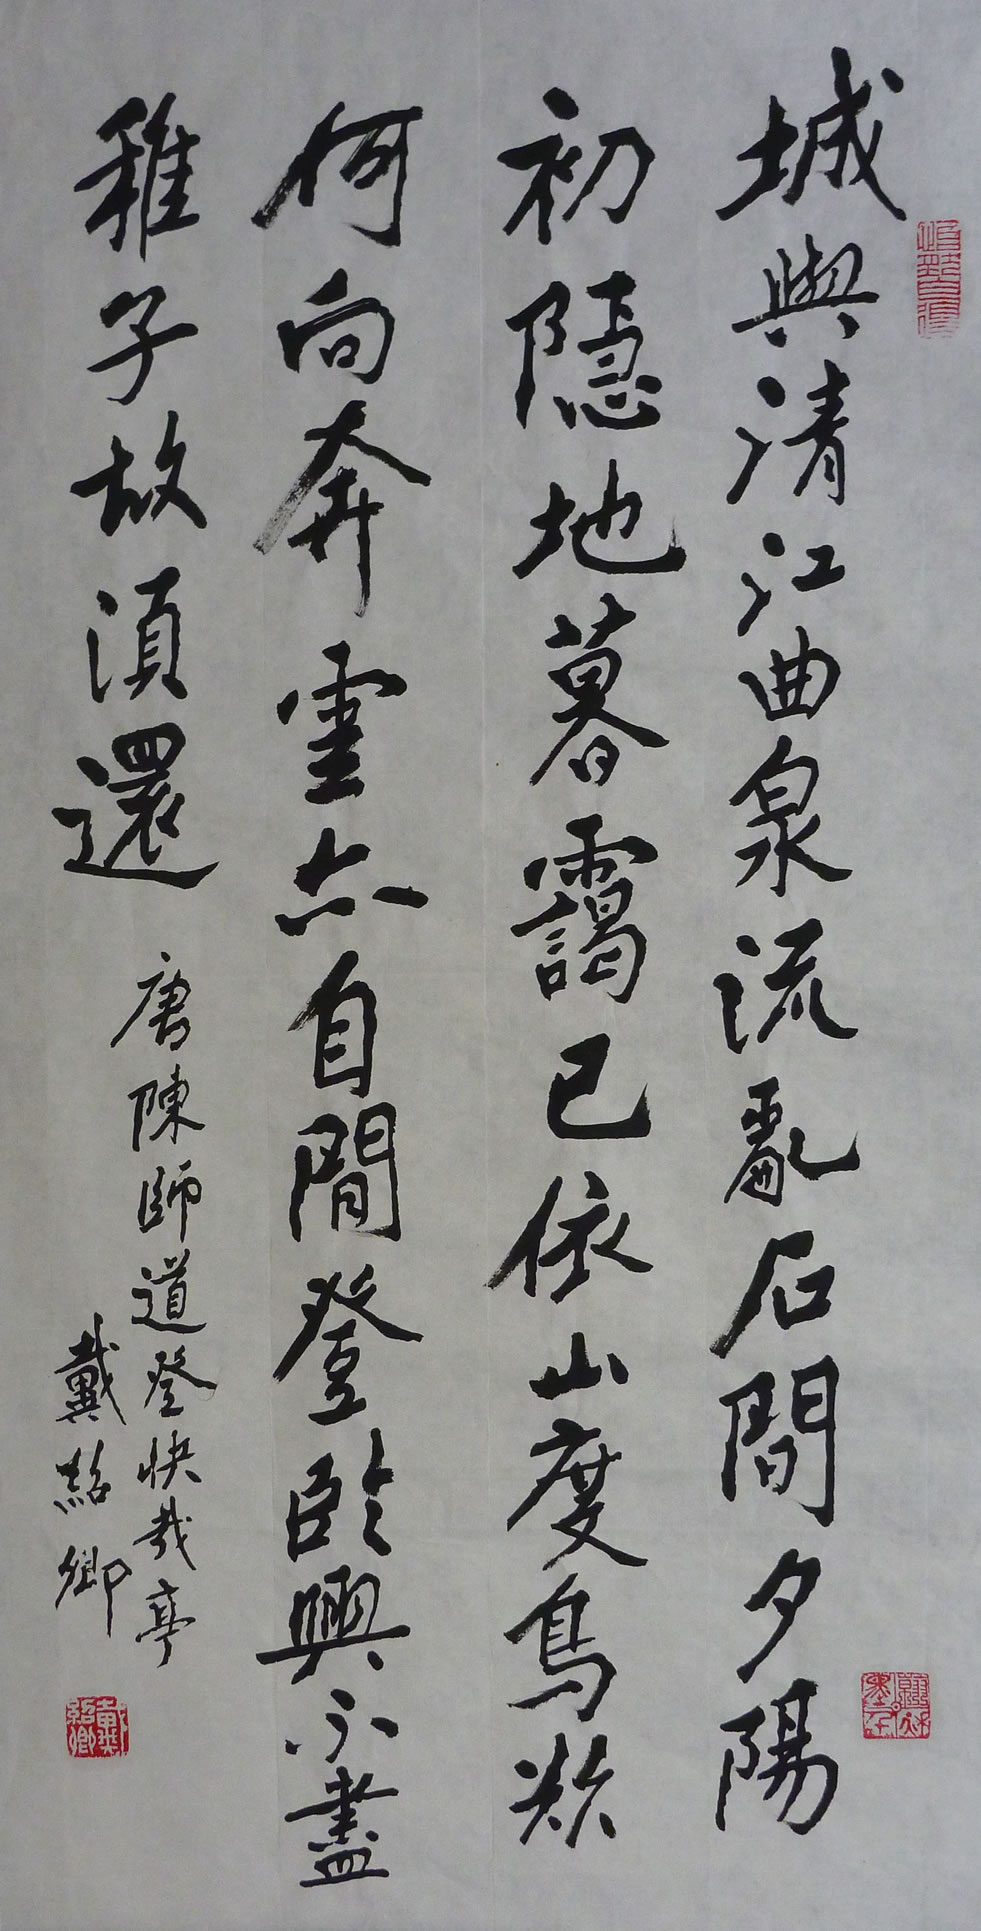 城與清江曲泉流亂石間夕陽
初隱地暮靄已依山度鳥欲
何向奔雲亦自閒登臨興不盡
稚子故須還
唐陳師道登快哉亭
戴紹卿
戴紹卿